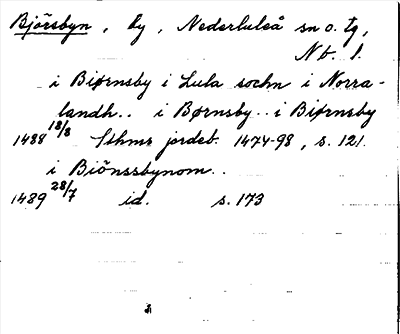 Björsbyn, by, Nederluleå sn o. tg,
Nb. l.
i Biørnsby i Lula sochn i Norra-
landh.. i Børnsby.. i Biørnsby
1488 18/8 Sthms jordeb. 1474-98, s. 121.
i Biönssbynom..
1489 28/7 id. s. 173